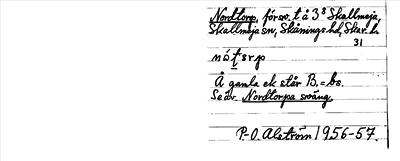 Nordtorp, försv. t å 3⁸ Skallmeja,
Skallmeja sn, Skånings hd, Skar. l.
31
nó̀ṭsrp
Å gamla ek står B. = bs.
Se äv. Nordtorpa sväng.
P-O. Alström 1956-57.